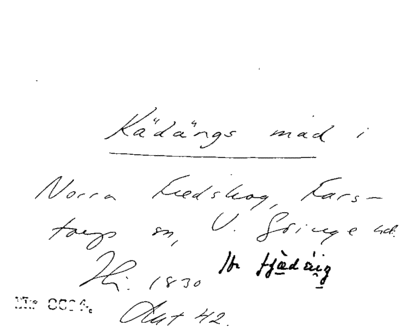 Kädängs mad i
Norra Fredskog, Fars-
torps sn, V. Göinge hd.
Hi. 1830
Akt 42.